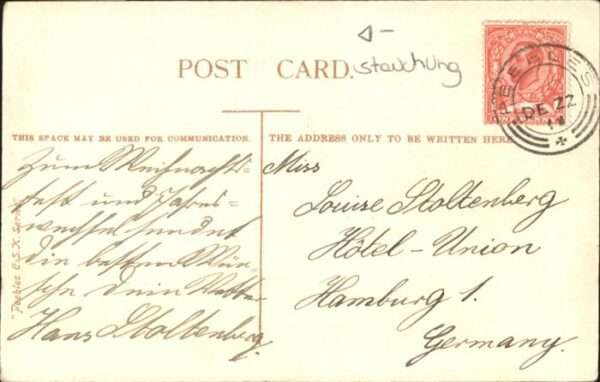 stauchung
POST CARD.
PEEBLES
DE 22
11
THIS SPACE MAY BE USED FOR COMMUNICATION.
THE ADDRESS ONLY TO BE WRITTEN HERE
Zum Weihnachts-
fest und Jahres-
wechsel sendet
die besten Wün-
sche Dein Vetter
Hans Stoltenberg.
Miss
Louise Stoltenberg
Hôtel-Union
Hamburg 1.
Germany.
"Peebles C.S.K. Series"